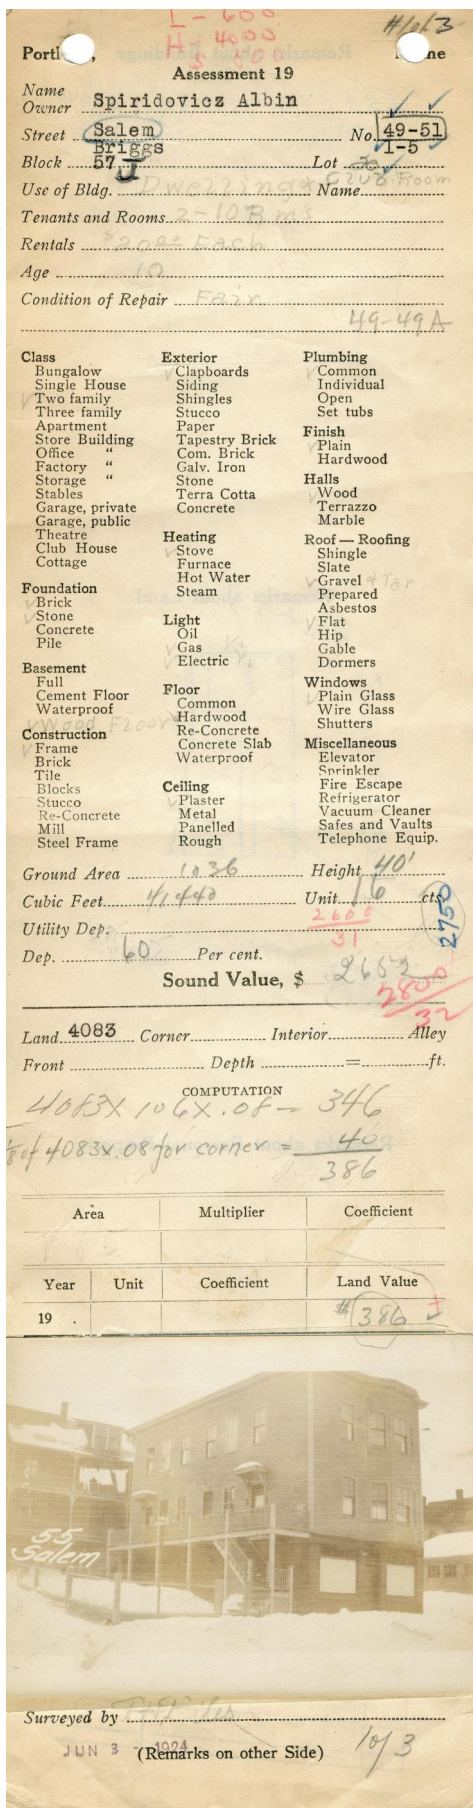 L - 600
H - 4000
#1 of 3
Portl , ne
Assessment 19
Name
Owner Spiridovicz Albin
Street Salem No. 49-51
Briggs 1-5
Block 57 J Lot
Use of Bldg. Dwelling & Name Club Room
Tenants and Rooms 2-10 Rms
Rentals $20.00 Each
Age 10
Condition of Repair Fair
49-49A
Class
Bungalow
Single House
✓ Two family
Three family
Apartment
Store Building
Office "
Factory "
Storage "
Stables
Garage, private
Garage, public
Theatre
Club House
Cottage
Foundation
✓ Brick
✓ Stone
Concrete
Pile
Basement
Full
Cement Floor
Waterproof
✓ Wood Floor
Construction
✓ Frame
Brick
Tile
Blocks
Stucco
Re-Concrete
Mill
Steel Frame
Exterior
✓ Clapboards
Siding
Shingles
Stucco
Paper
Tapestry Brick
Com. Brick
Galv. Iron
Stone
Terra Cotta
Concrete
Heating
✓ Stove
Furnace
Hot Water
Steam
Light
Oil
✓ Gas 1/2
✓ Electric 1/2
Floor
Common
✓ Hardwood
Re-Concrete
Concrete Slab
Waterproof
Ceiling
✓ Plaster
Metal
Panelled
Rough
Plumbing
✓ Common
Individual
Open
Set tubs
Finish
✓ Plain
Hardwood
Halls
✓ Wood
Terrazzo
Marble
Roof — Roofing
Shingle
Slate
✓ Gravel & Tar
Prepared
Asbestos
✓ Flat
Hip
Gable
Dormers
Windows
✓ Plain Glass
Wire Glass
Shutters
Miscellaneous
Elevator
Sprinkler
Fire Escape
Refrigerator
Vacuum Cleaner
Safes and Vaults
Telephone Equip.
Ground Area 1036 Height 40'
Cubic Feet 41440 Unit 16 cts.
2750
Utility Dep. 2600
31
Dep. 60 Per cent.
Sound Value, $ 2652
2800
32
Land 4083 Corner Interior Alley
Front Depth = ft.
COMPUTATION
4083 X 106 X .08 = 346
1/8 of 4083 x .08 for corner = 40
386
Area Multiplier Coefficient
Year Unit Coefficient Land Value
19 . # 386
55
Salem
Surveyed by
JUN 3 - 1924
(Remarks on other Side)
1 of 3